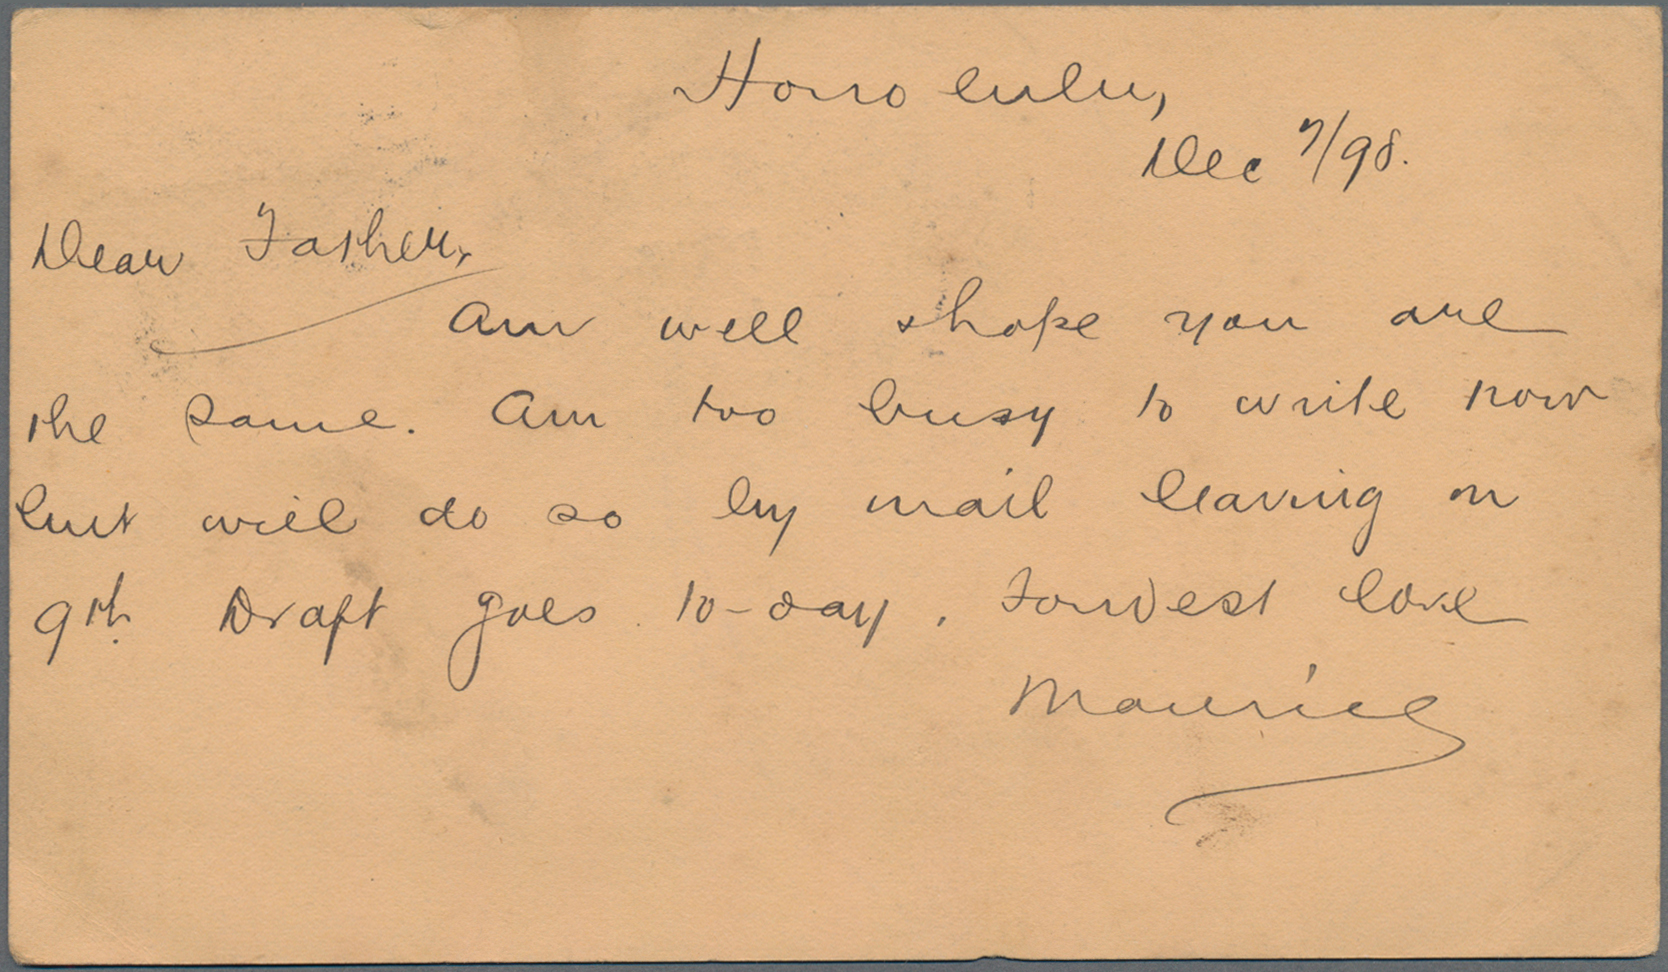 Honolulu,
Dec 7/98.
Dear Father,
Am well & hope you are
the same. Am too busy to write now
but will do so by mail leaving on
9th. Draft goes to-day. Fondest love
Maurice